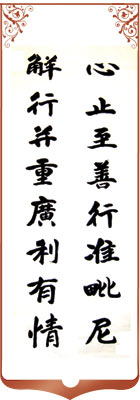 心止至善行准毗尼
解行并重廣利有情